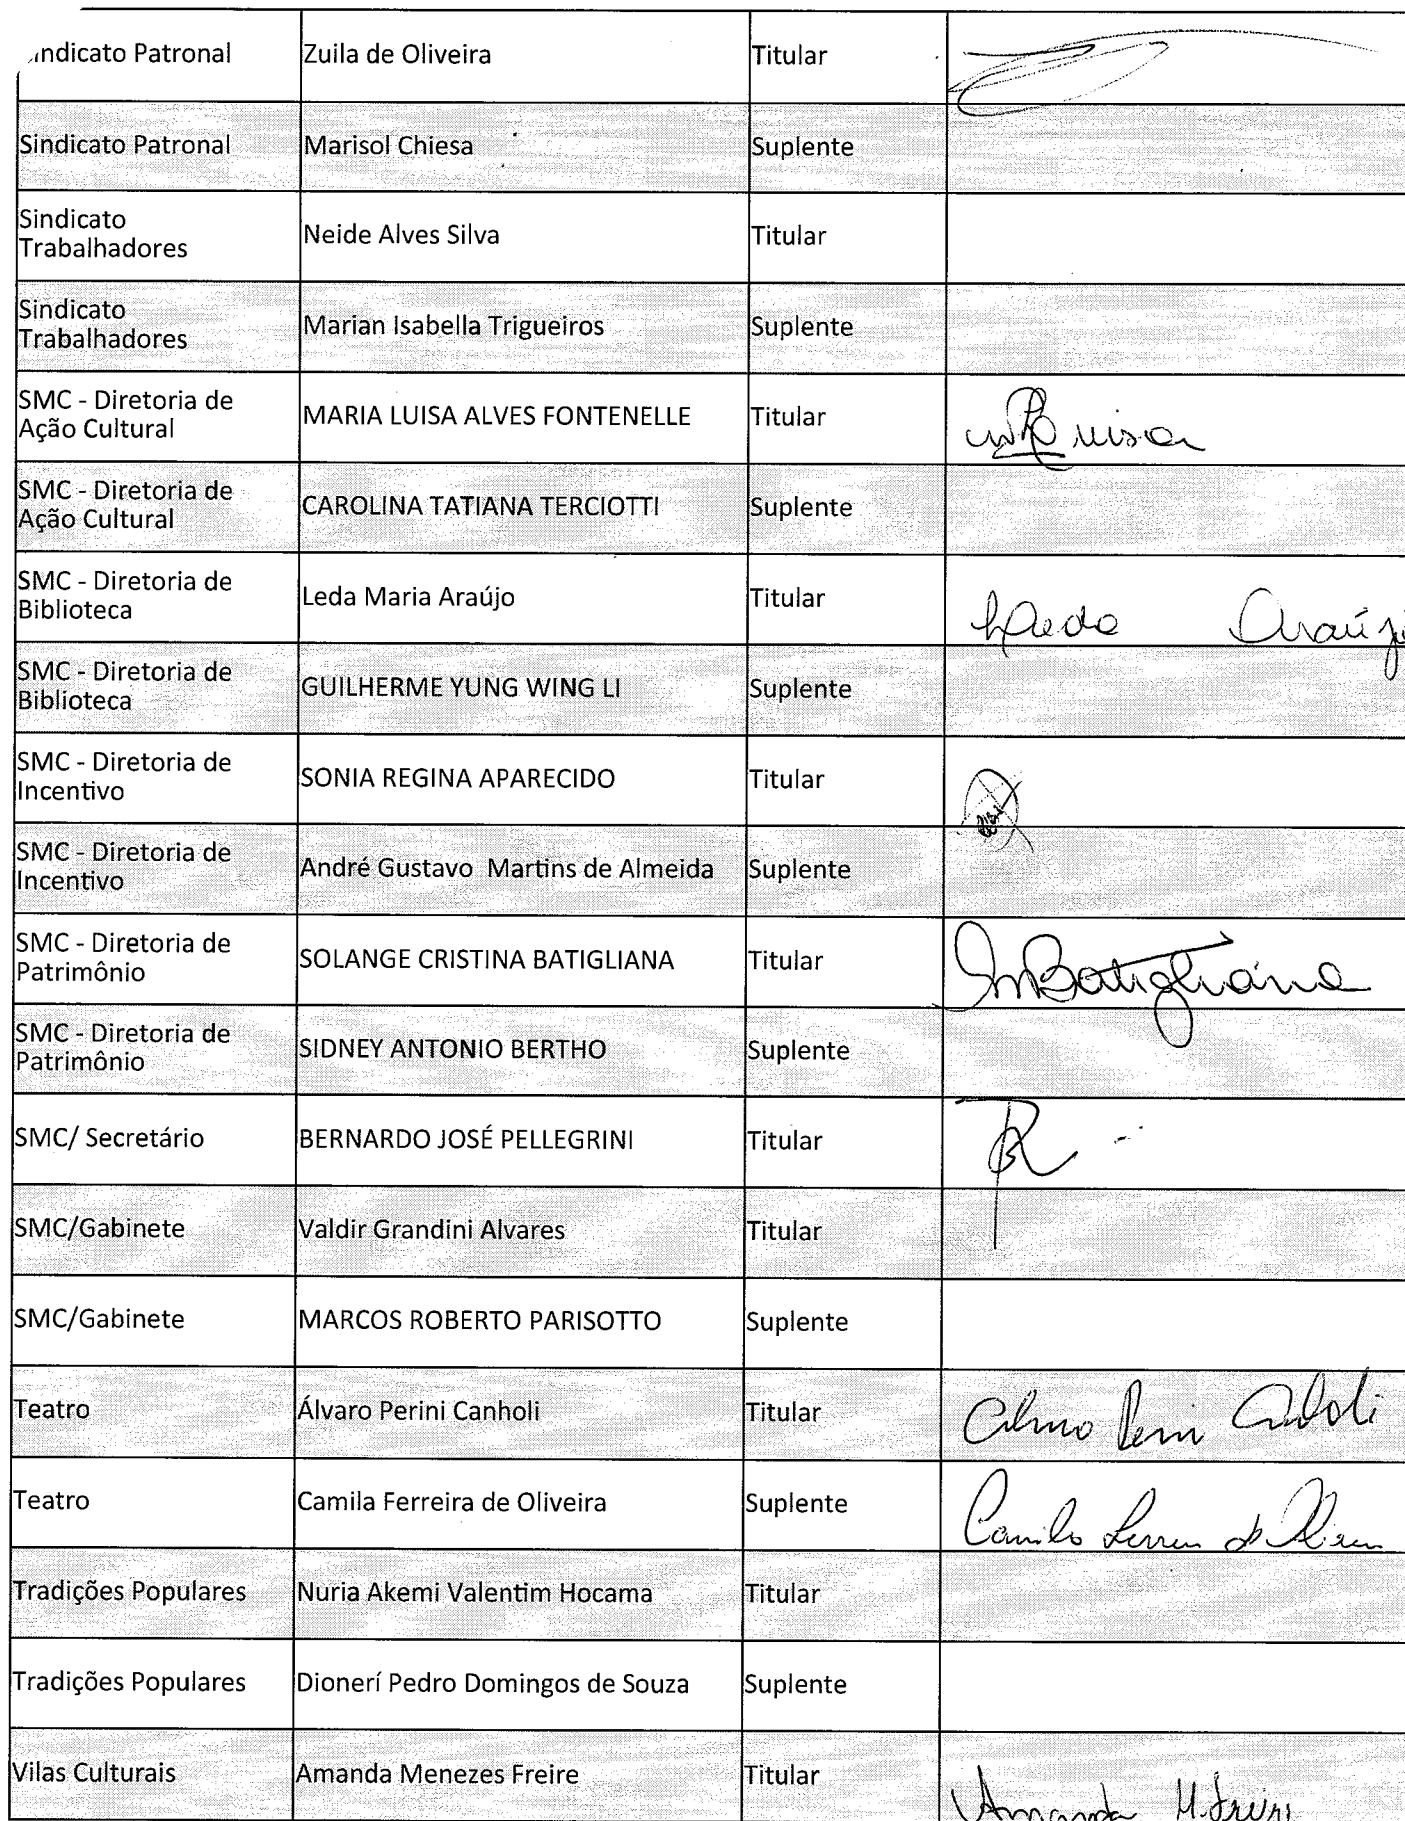 indicato Patronal Zuila de Oliveira Titular
Sindicato Patronal Marisol Chiesa Suplente
Sindicato
Trabalhadores Neide Alves Silva Titular
Sindicato
Trabalhadores Marian Isabella Trigueiros Suplente
SMC - Diretoria de
Ação Cultural MARIA LUISA ALVES FONTENELLE Titular
SMC - Diretoria de
Ação Cultural CAROLINA TATIANA TERCIOTTI Suplente
SMC - Diretoria de
Biblioteca Leda Maria Araújo Titular Leda Araúj
SMC - Diretoria de
Biblioteca GUILHERME YUNG WING LI Suplente
SMC - Diretoria de
Incentivo SONIA REGINA APARECIDO Titular
SMC - Diretoria de
Incentivo André Gustavo Martins de Almeida Suplente
SMC - Diretoria de
Patrimônio SOLANGE CRISTINA BATIGLIANA Titular Batigliana
SMC - Diretoria de
Patrimônio SIDNEY ANTONIO BERTHO Suplente
SMC/ Secretário BERNARDO JOSÉ PELLEGRINI Titular
SMC/Gabinete Valdir Grandini Alvares Titular
SMC/Gabinete MARCOS ROBERTO PARISOTTO Suplente
Teatro Álvaro Perini Canholi Titular
Teatro Camila Ferreira de Oliveira Suplente Camila
Tradições Populares Nuria Akemi Valentim Hocama Titular
Tradições Populares Dionerí Pedro Domingos de Souza Suplente
Vilas Culturais Amanda Menezes Freire Titular Amanda M. Freire